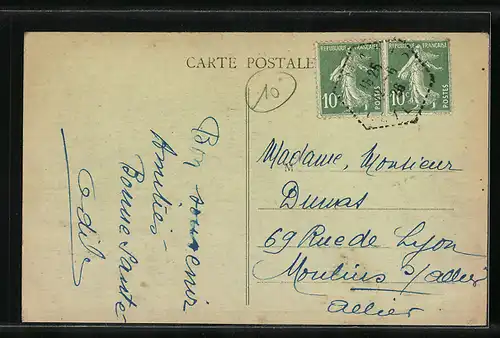 CARTE POSTALE
10
REPUBLIQUE FRANÇAISE
10c
POSTES
REPUBLIQUE FRANÇAISE
10c
POSTES
Bon souvenir
Amitiés -
Bonne Santé -
Odile
Madame, Monsieur
Dumas
69 Rue de Lyon
Moulins s/Allier
Allier